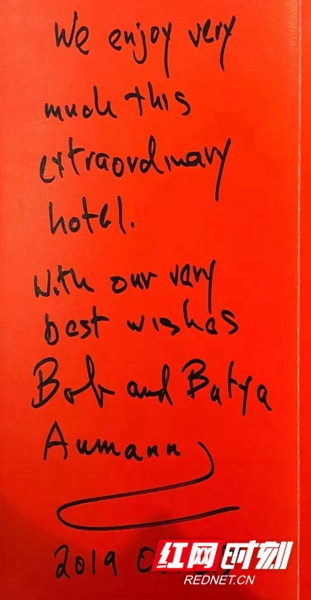 We enjoy very
much this
extraordinary
hotel.
With our very
best wishes
Bob and Batya
Aumann
2019
红网时刻
REDNET.CN